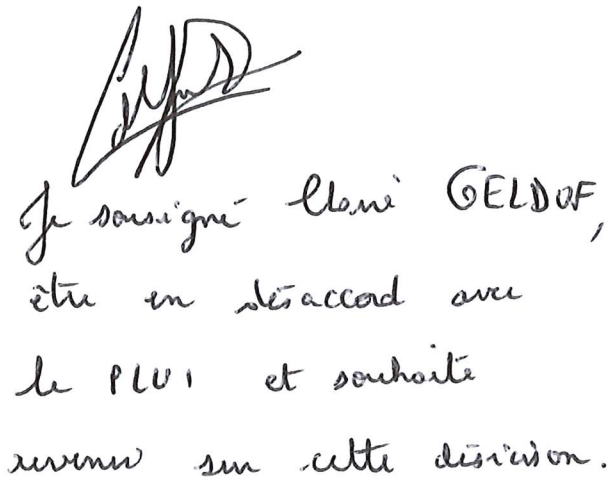 Je sousigné GELDOF,
être en désaccord avec
le PLUI et souhaite
revenir sur cette désicison.